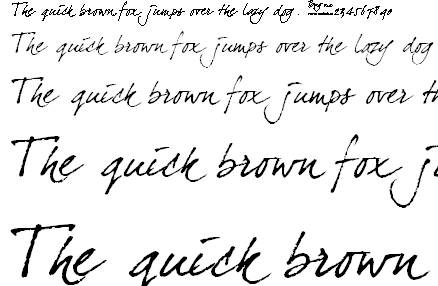 The quick brown fox jumps over the lazy dog. 234567890
The quick brown fox jumps over the lazy dog
The quick brown fox jumps over th
The quick brown fox ju
The quick brown